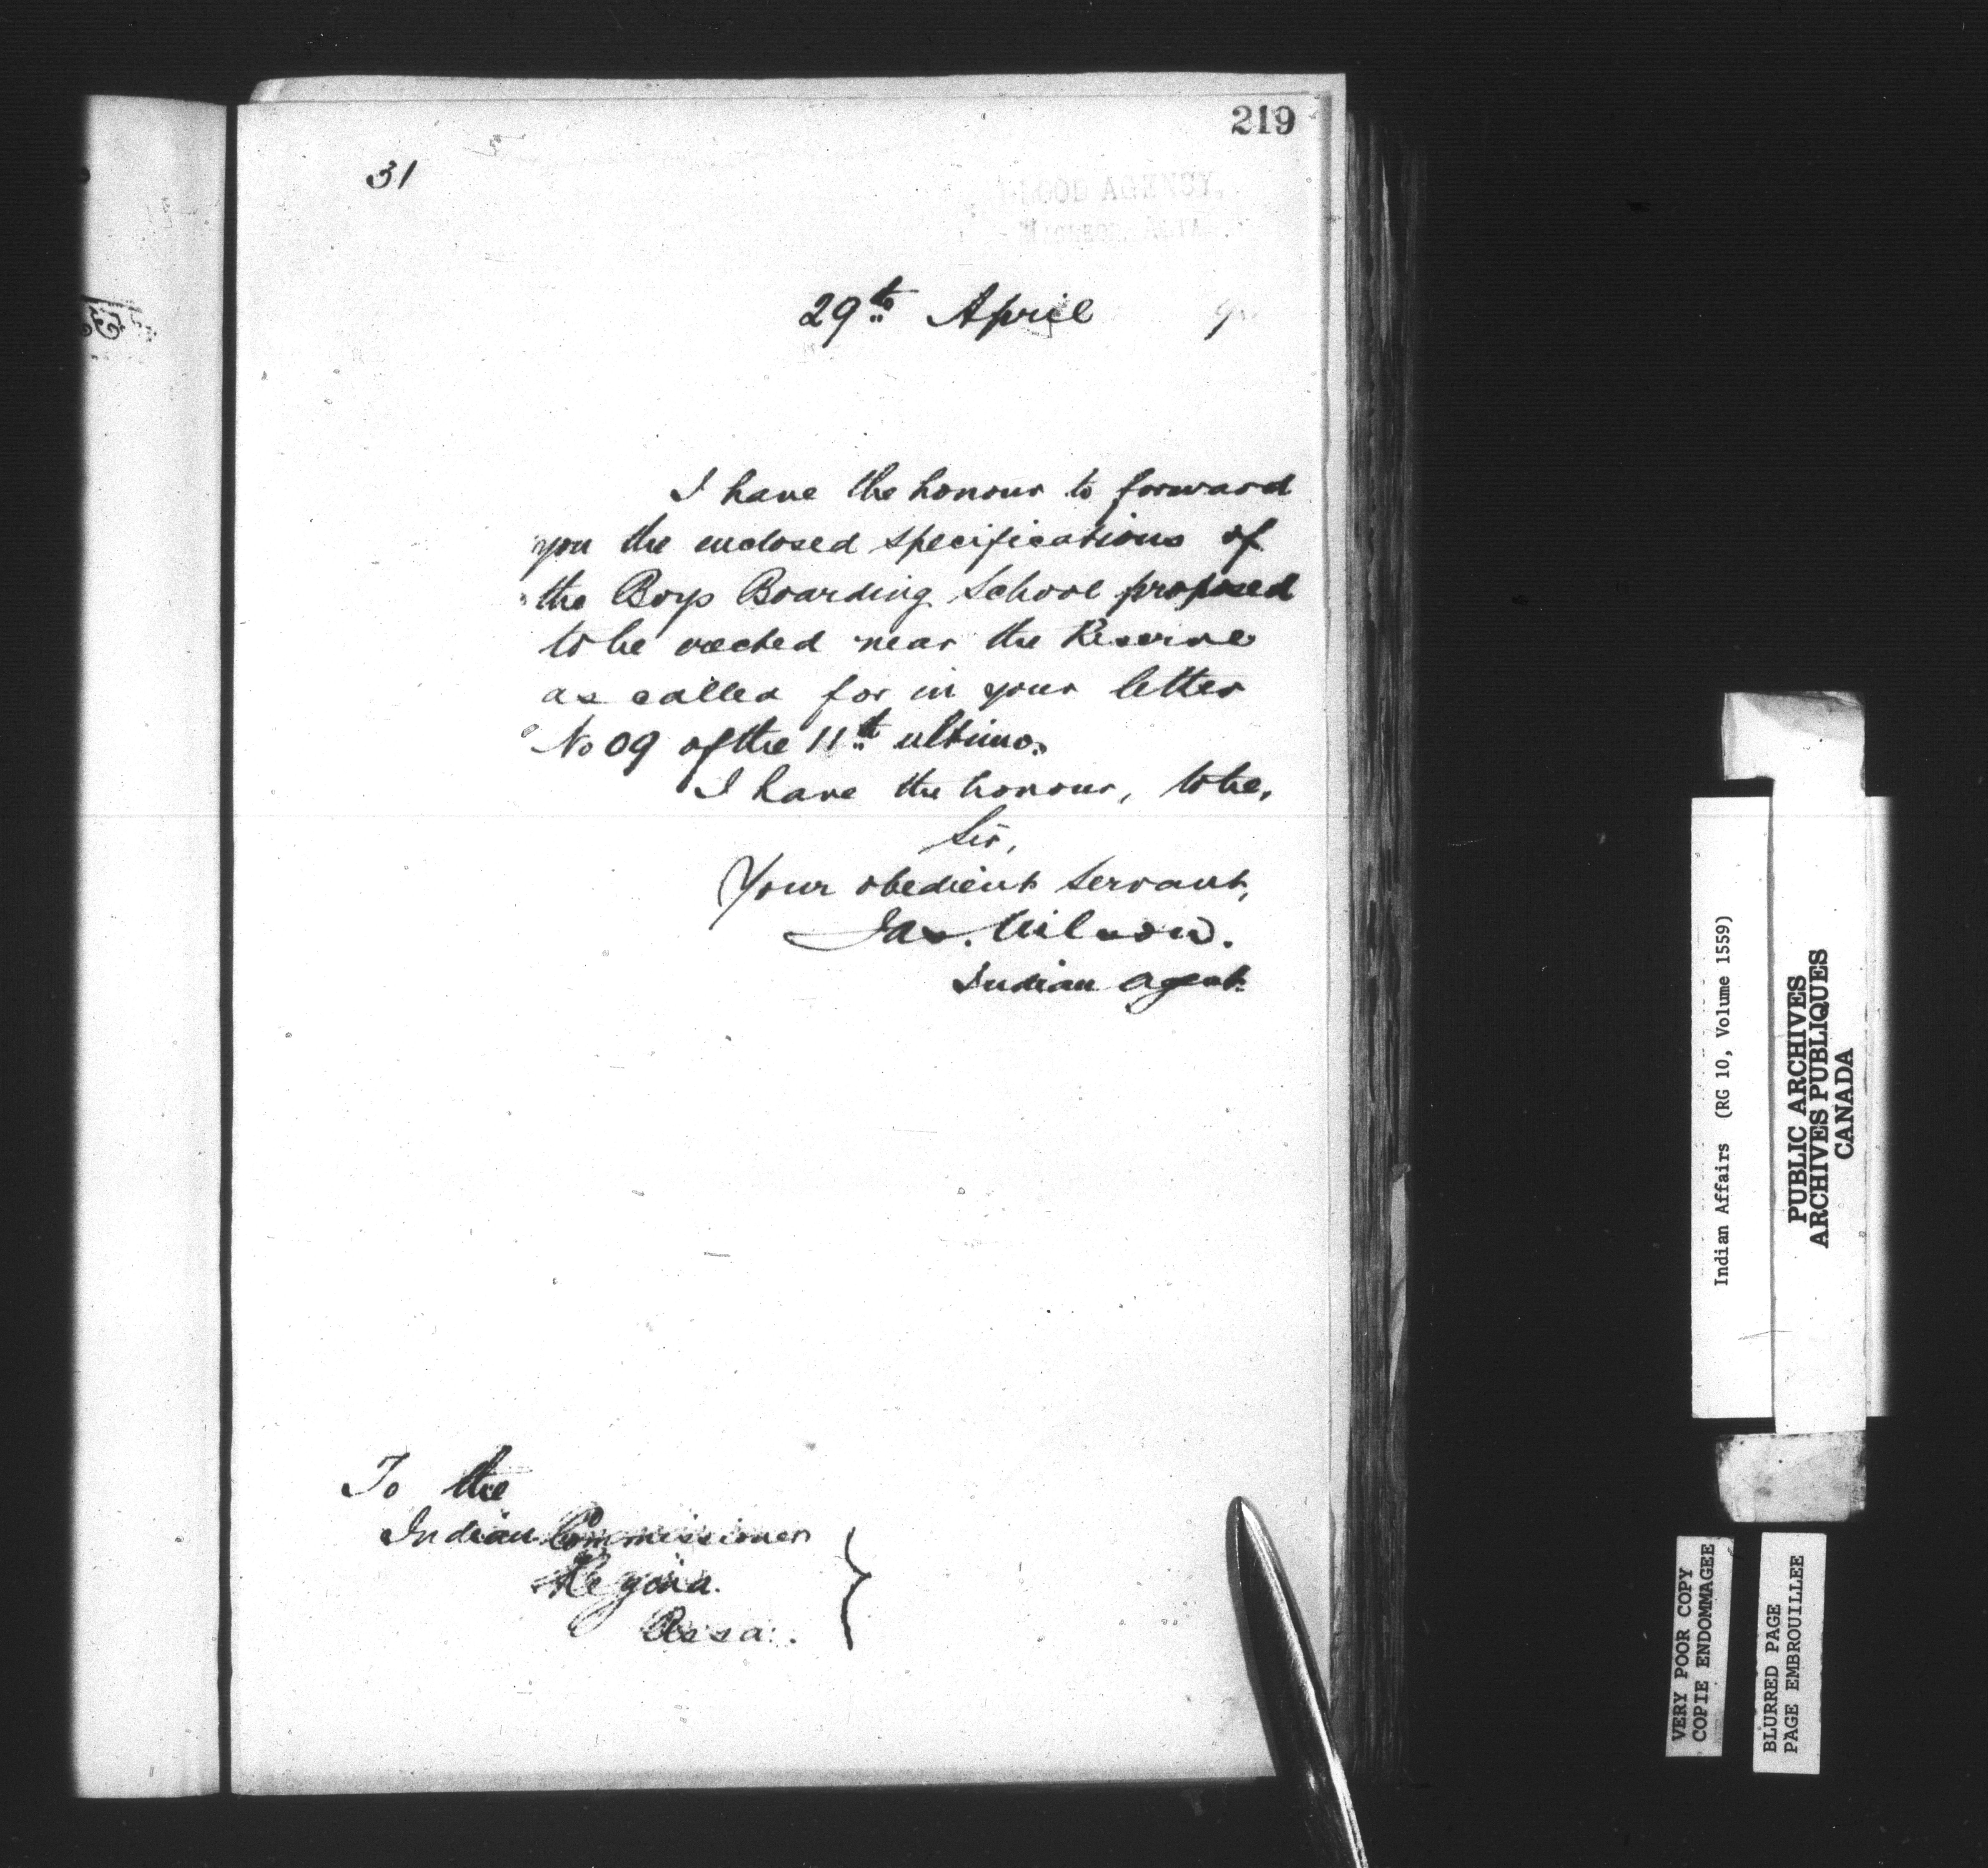 219
31
BLOOD AGENCY,
MACLEOD, ALTA
29th April 9
I have the honour to forward
you the enclosed specifications of
the Boys Boarding School proposed
to be erected near the Reserve
as called for in your letter
No 09 of the 11th ultimo.
I have the honour, to be,
Sir,
Your obedient Servant,
Jas. Wilson.
Indian Agent
To the
Indian Commissioner
Regina.
Assa.
Indian Affairs (RG 10, Volume 1559)
PUBLIC ARCHIVES
ARCHIVES PUBLIQUES
CANADA
VERY POOR COPY
COPIE ENDOMMAGEE
BLURRED PAGE
PAGE EMBROUILLEE